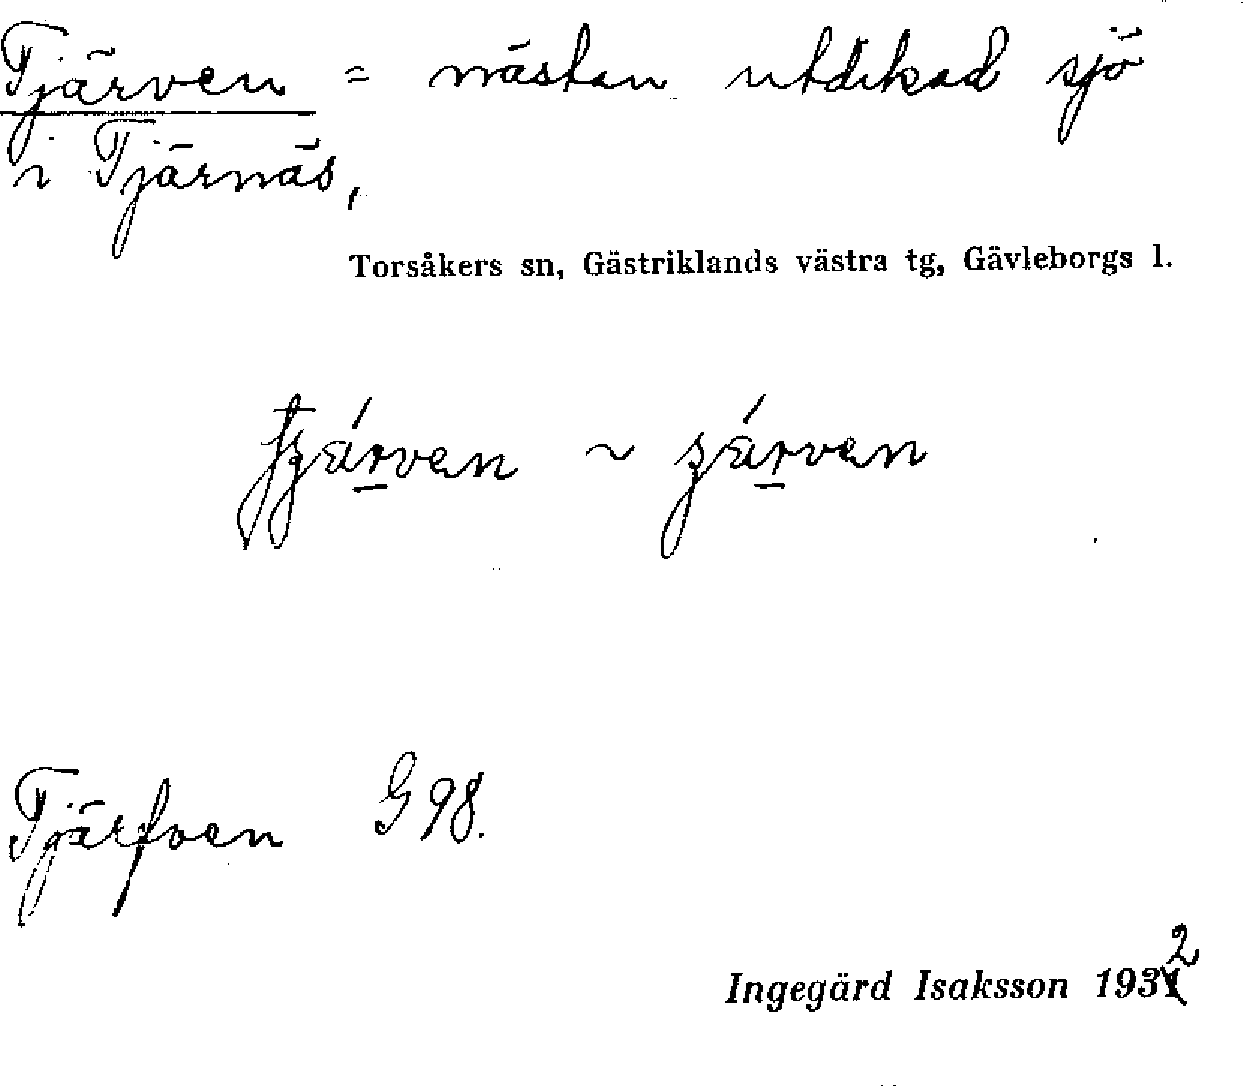 Tjärven = nästan utdikad sjö
i Tjärnäs,
Torsåkers sn, Gästriklands västra tg, Gävleborgs l.
~
Tjärfven G 98.
Ingegärd Isaksson 1932